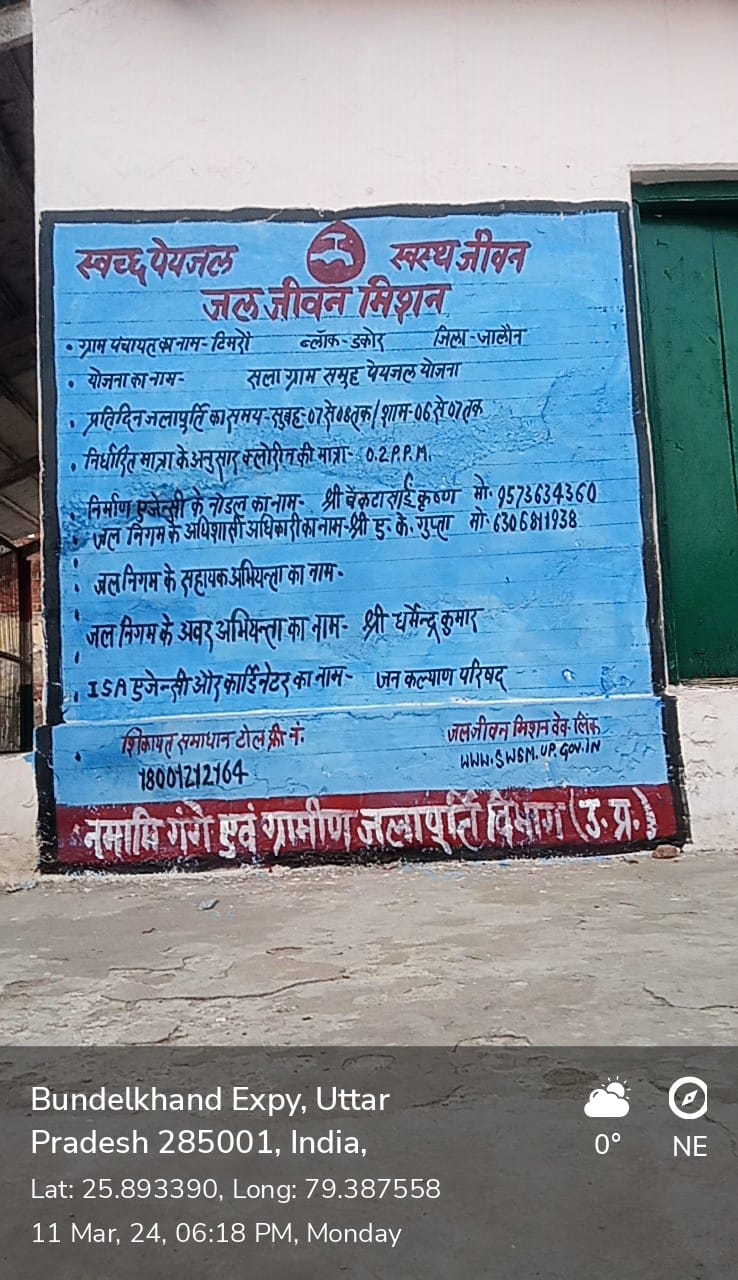 स्वच्छ पेयजल स्वस्थ जीवन
जल जीवन मिशन
• ग्राम पंचायत का नाम- टिमरों ब्लॉक-डकोर जिला-जालौन
• योजना का नाम- सला ग्राम समूह पेयजल योजना
• प्रतिदिन जलापूर्ति का समय-सुबह-07से08तक/शाम-06से07तक
• निर्धारित मात्रा के अनुसार क्लोरीन की मात्रा- 0.2 P.P.M.
• निर्माण एजेन्सी के नोडल का नाम- श्री वेंकटा साई कृष्ण मो. 9573634360
• जल निगम के अधिशासी अधिकारी का नाम-श्री ए. के. गुप्ता मो- 6306811938
• जल निगम के सहायक अभियन्ता का नाम-
जल निगम के अवर अभियन्ता का नाम- श्री धर्मेन्द्र कुमार
• ISA एजेन्सी और कार्डिनेटर का नाम- जन कल्याण परिषद्
• शिकायत समाधान टोल फ्री नं. जल जीवन मिशन वेब लिंक
18001212164 WWW.SWSM.UP.GOV.IN
नमामि गंगे एवं ग्रामीण जलापूर्ति विभाग (उ.प्र.)
Bundelkhand Expy, Uttar
Pradesh 285001, India,
0° NE
Lat: 25.893390, Long: 79.387558
11 Mar, 24, 06:18 PM, Monday